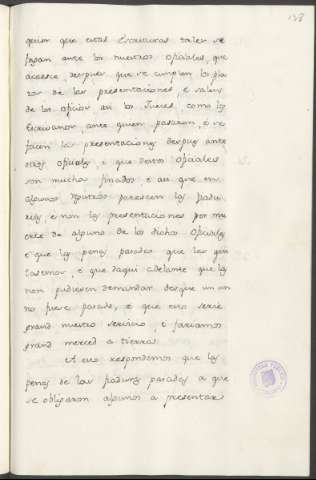 133
quier que estas Escrituras tales se
fagan ante los nuestros Oficiales, que
acaesce, despues que se cumplen los pla
zos de las presentaciones, e salen
de los oficios asi los Jueces, como los
Escrivanos ante quien pasaron, e se
facen las presentaciones despues ante
otros oficiales, e que destos Oficiales
son muchos finados, e asi que en
algunos parescen las fiadu
rias, e non las presentaciones por mu
erte de alguno de los dichos Oficiales
e que las penas pasadas que las qui
tasemos, e que daqui adelante que las
non pudiesen demandar desque un an
no fuese pasado, e que esto serie
grand nuestro servicio, e fariamos
grand merced a tierra.
A esto respondemos que las
penas de las fiaduras pasadas a que
se obligaron algunos a presentar